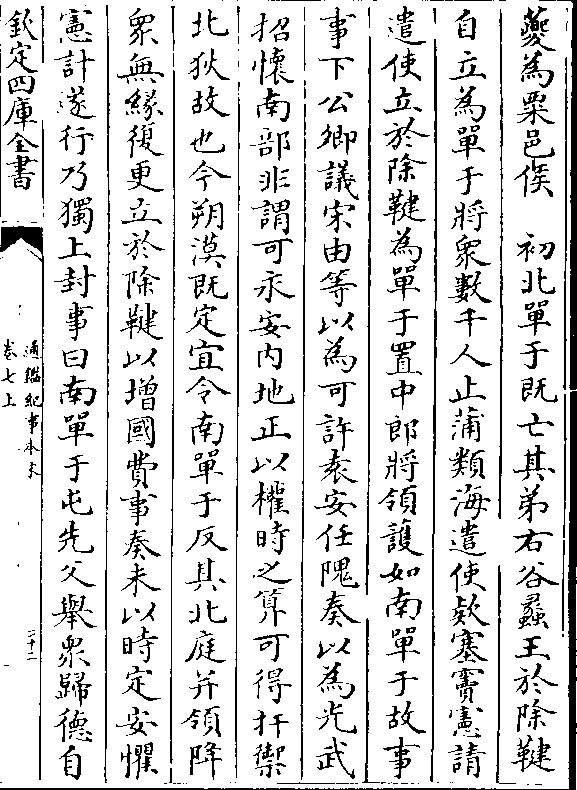 夔為粟邑侯　初北單于既亡其弟右谷蠡王於除鞬
自立為單于將衆數千人止蒲類海遣使欵塞竇憲請
遣使立於除鞬為單于置中郎將領護如南單于故事
事下公卿議宋由等以為可許袁安任隗奏以為光武
招懷南部非謂可永安内地正以權時之算可得扞禦
北狄故也今朔漠既定宜令南單于反其北庭并領降
衆無緣復更立於除鞬以增國費事奏未以時定安懼
憲計遂行乃獨上封事曰南單于屯先父舉衆歸德自
欽定四庫全書
通鑑紀事本末
卷七上
二十二